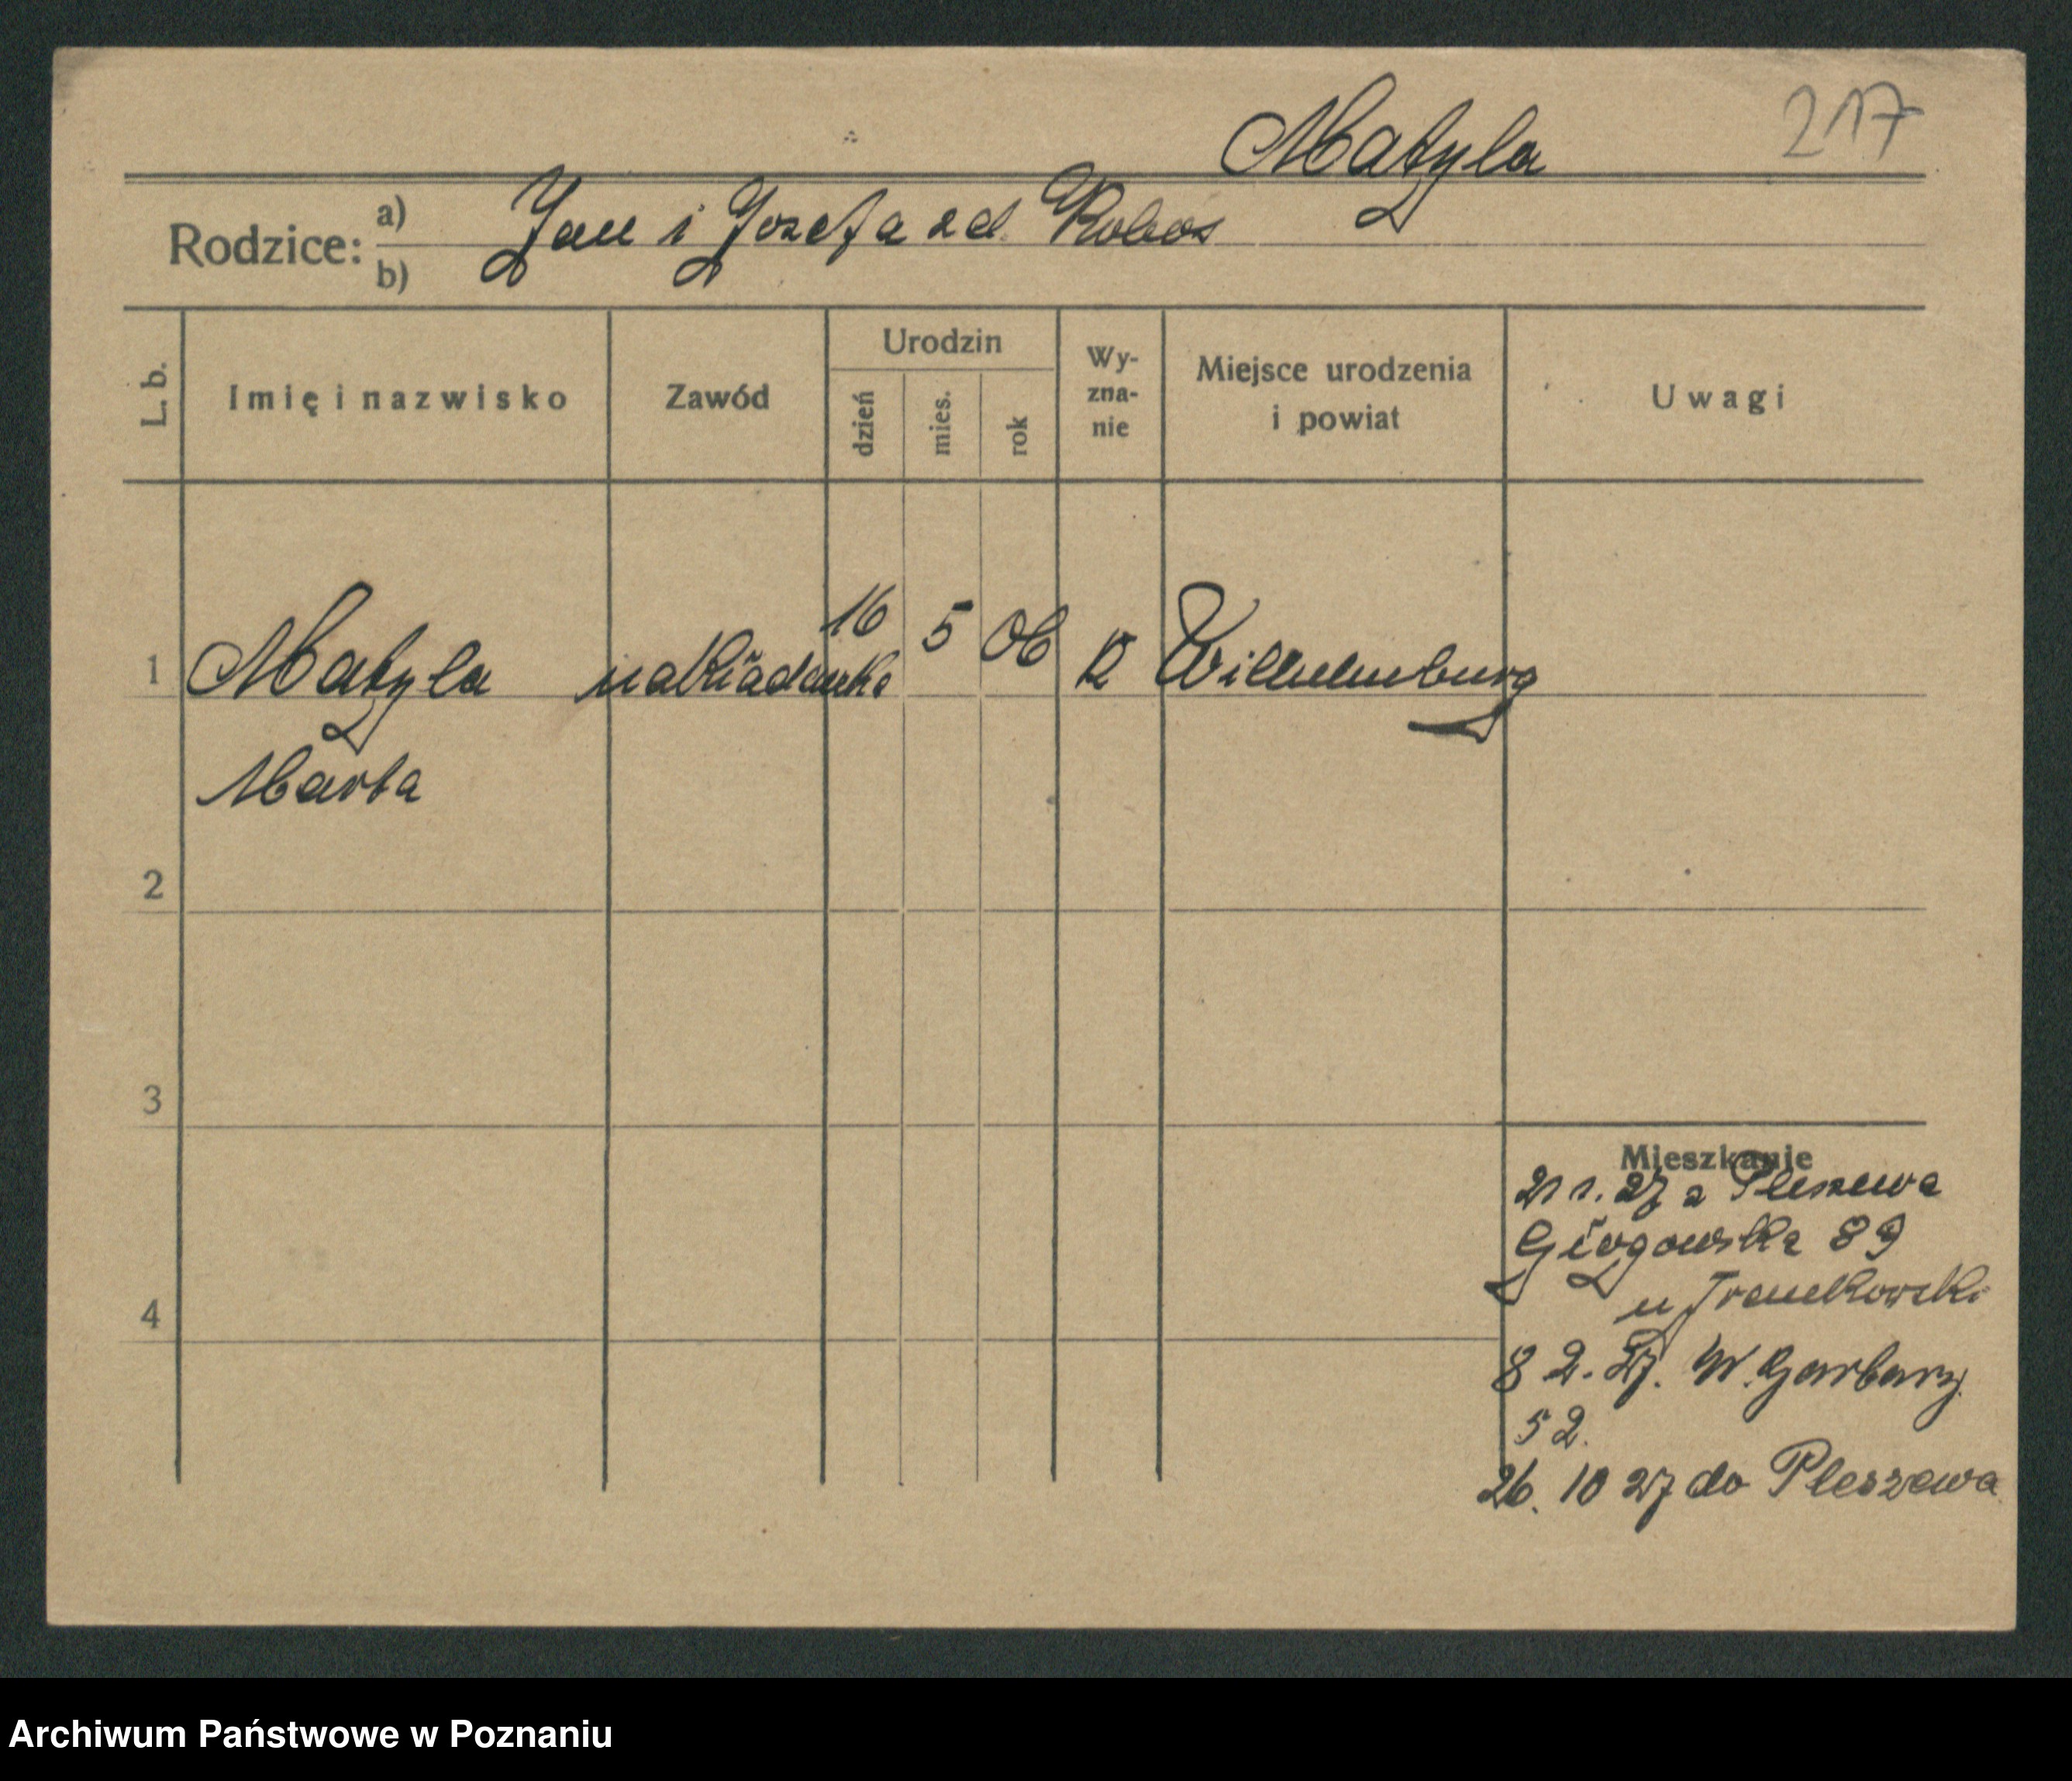 217
Matyla
Rodzice: a) Jan i Jozefa zd. Kobos
b)
L. b.
Imię i nazwisko
Zawód
Urodzin
dzień
mies.
rok
Wy-
zna-
nie
Miejsce urodzenia
i powiat
Uwagi
1 Matyla nakładanka 16 5 06 K Wilhelmsburg
Marta
2
3
4
Mieszkanie
21 1. 27 z Pleszewa
Głogowska 89
u Frenkowski
8 2. 27. W. Garbary
52.
26. 10 27 do Pleszewa
Archiwum Państwowe w Poznaniu